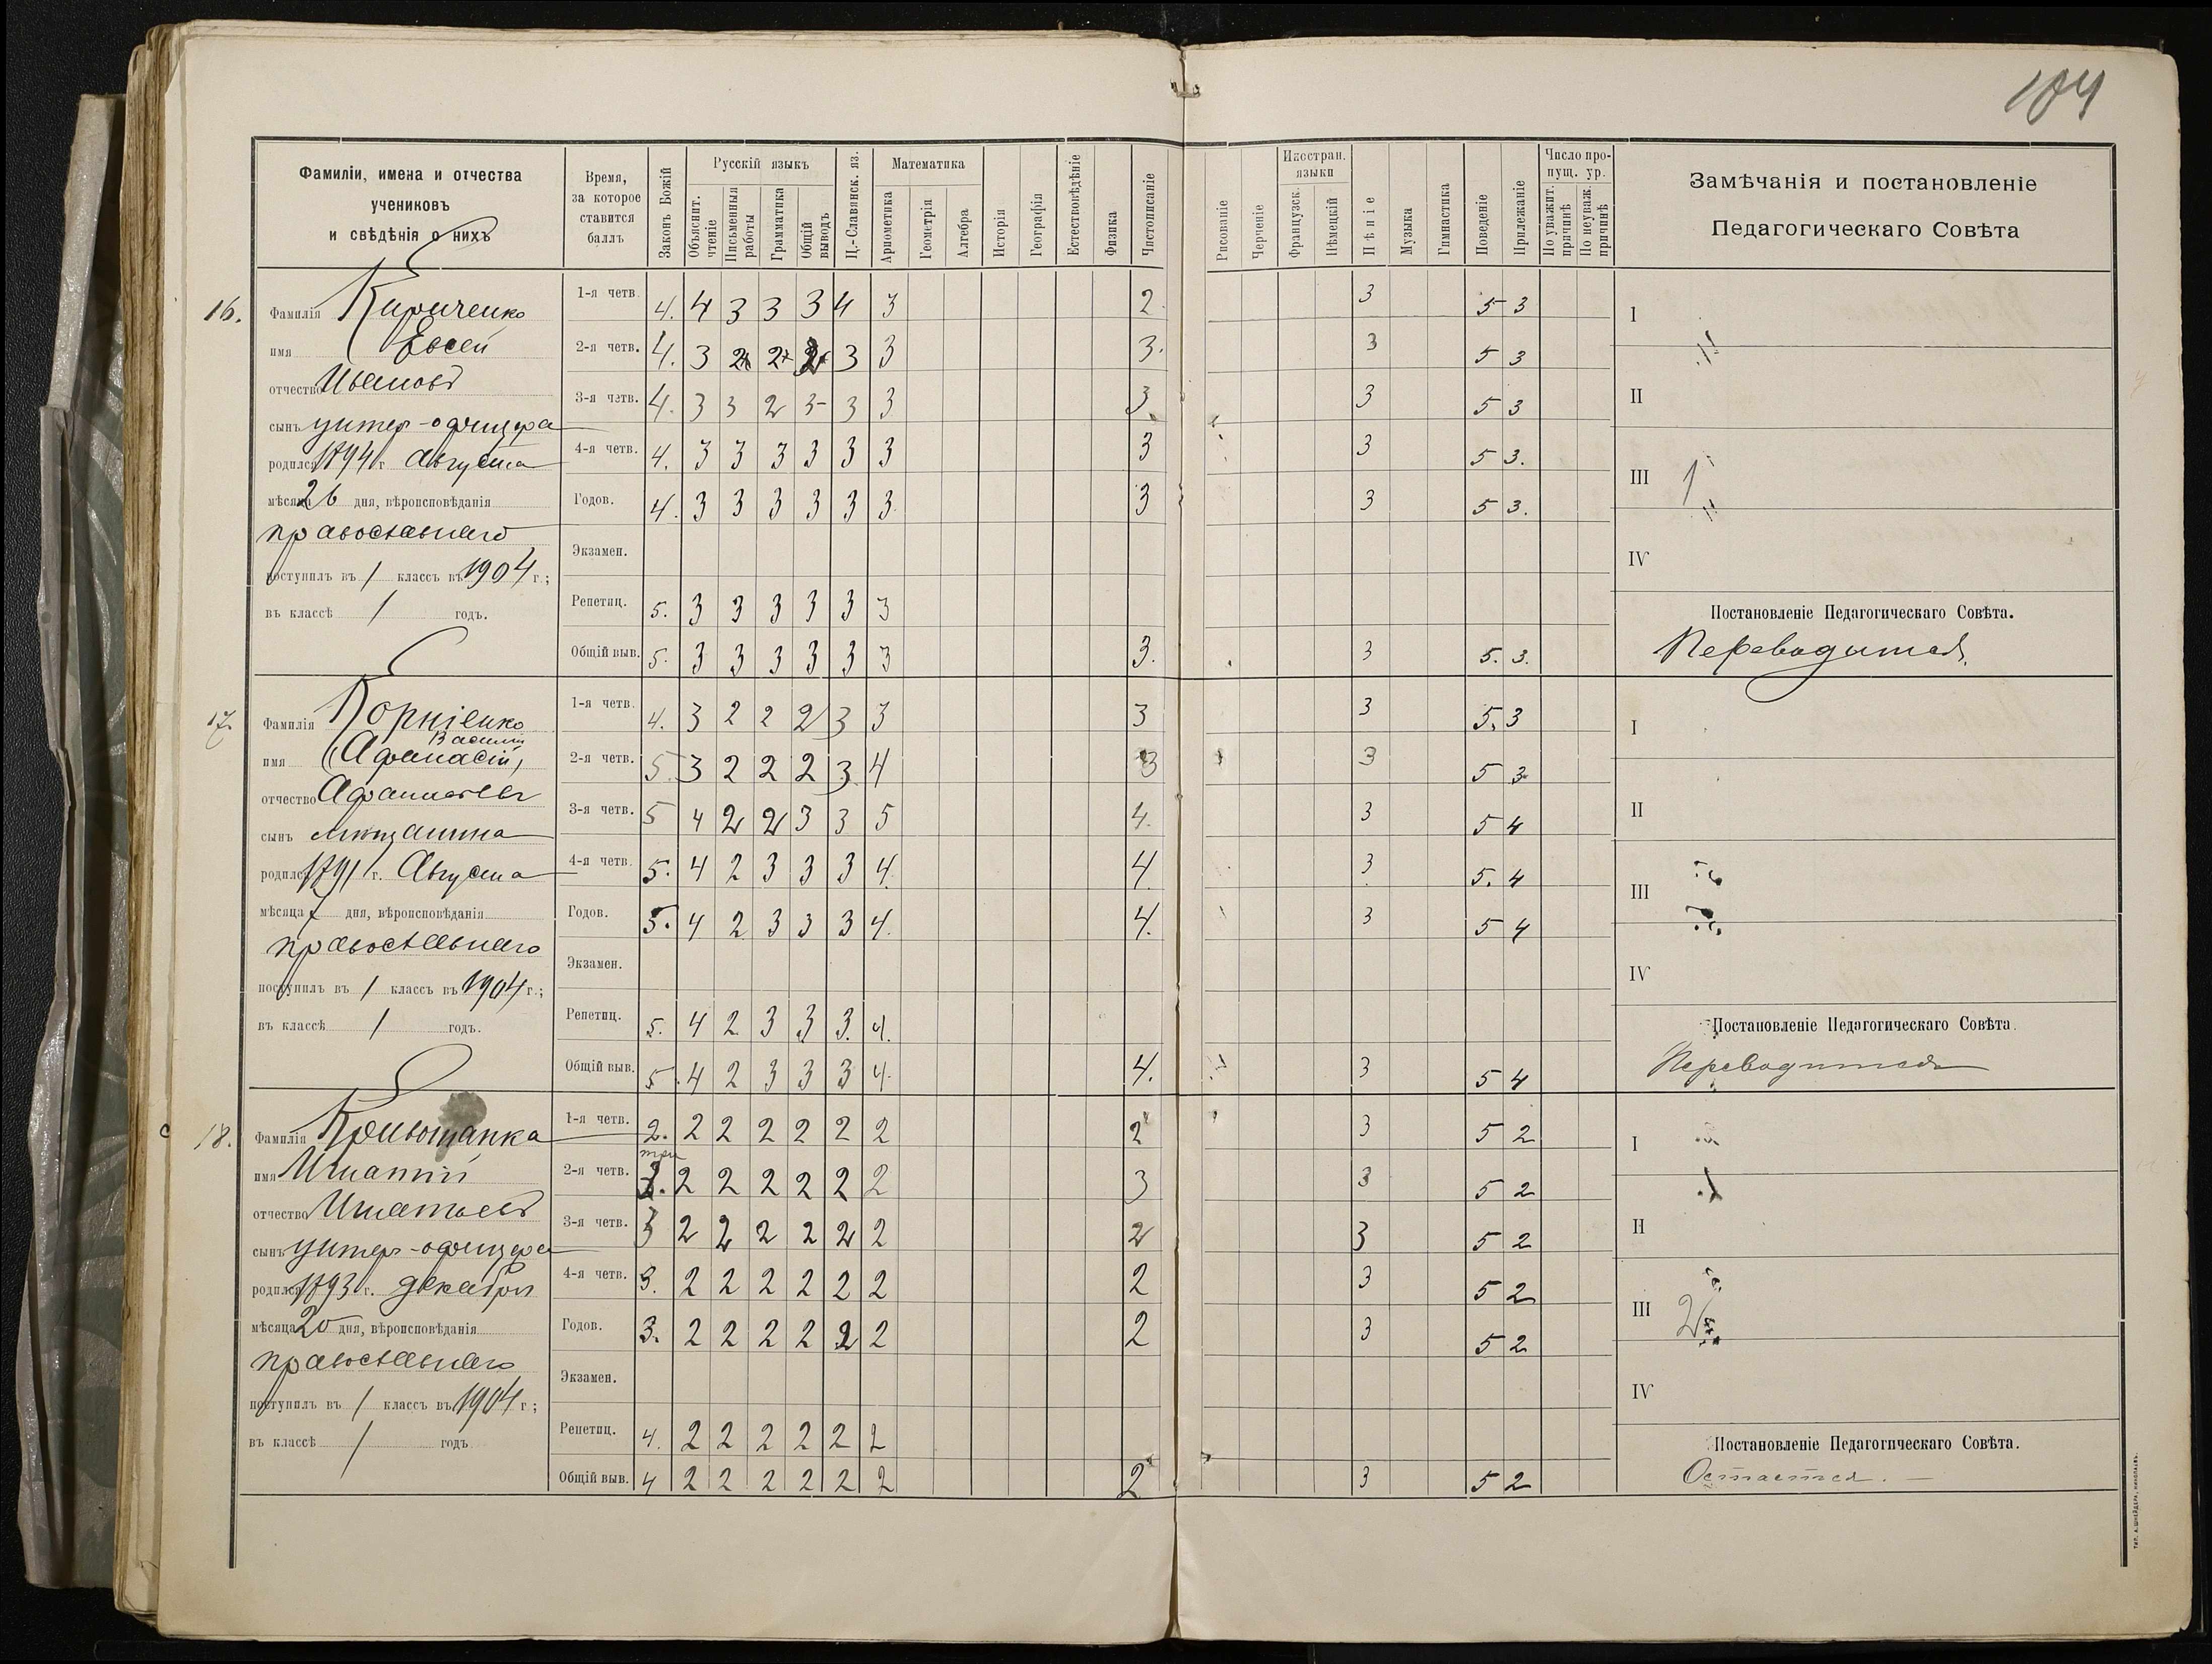 104
Фамиліи, имена и отчества
учениковъ
и свѣдѣнія о нихъ
Время,
за которое
ставится
баллъ
Законъ Божій
Русскій языкъ
Объяснит. чтеніе
Письменныя работы
Грамматика
Общій выводъ
Ц.-Славянск. яз.
Математика
Ариѳметика
Геометрія
Алгебра
Исторія
Географія
Естествовѣдѣніе
Физика
Чистописаніе
Рисованіе
Черченіе
Иностран. языки
Французск.
Нѣмецкій
Пѣніе
Музыка
Гимнастика
Поведеніе
Прилежаніе
Число пропущ. ур.
По уважит. причинѣ
По неуваж. причинѣ
Замѣчанія и постановленіе
Педагогическаго Совѣта
16.
Фамилія Кириченко
имя Евсей
отчество Ивановъ
сынъ унтер-офицера
родился 1894 г. Августа
мѣсяца 26 дня, вѣроисповѣданія
православнаго
поступилъ въ 1 классъ въ 1904 г.;
въ классѣ 1 годъ.
1-я четв. 4. 4 3 3 3 4 3 2. 3 5 3
2-я четв. 4. 3 2 2 3 3 3. 3 5 3
3-я четв. 4. 3 3 2 3 3 3 3 3 5 3
4-я четв. 4. 3 3 3 3 3 3 3 3 5 3.
Годов. 4. 3 3 3 3 3 3 3 3 5 3.
Экзамен.
Репетиц. 5. 3 3 3 3 3 3
Общій выв. 5. 3 3 3 3 3 3 3. 3 5. 3.
I
II
III 1
IV
Постановленіе Педагогическаго Совѣта.
Переводится.
17.
Фамилія Корніенко
Василій
имя (Афанасій)
отчество Афанасьевъ
сынъ мѣщанина
родился 1891 г. Августа
мѣсяца 7 дня, вѣроисповѣданія
православнаго
поступилъ въ 1 классъ въ 1904 г.;
въ классѣ 1 годъ.
1-я четв. 4. 3 2 2 2 3 3 3 3 5. 3
2-я четв. 5. 3 2 2 2 3 4 3 3 5 3
3-я четв. 5 4 2 2 3 3 5 4. 3 5 4
4-я четв. 5. 4 2 3 3 3 4. 4. 3 5. 4
Годов. 5. 4 2 3 3 3 4. 4. 3 5 4
Экзамен.
Репетиц. 5. 4 2 3 3 3. 4.
Общій выв. 5. 4 2 3 3 3 4. 4. 3 5 4
I
II
III
IV
Постановленіе Педагогическаго Совѣта.
Переводится
18.
Фамилія Кривошапка
имя Игнатій
отчество Игнатьевъ
сынъ унтер-офицера
родился 1893 г. декабря
мѣсяца 20 дня, вѣроисповѣданія
православнаго
поступилъ въ 1 классъ въ 1904 г.;
въ классѣ 1 годъ
1-я четв. 2. 2 2 2 2 2 2 2 3 5 2
три
2-я четв. 3. 2 2 2 2 2 2 3 3 5 2
3-я четв. 3 2 2 2 2 2 2 2 3 5 2
4-я четв. 3. 2 2 2 2 2 2 2 3 5 2
Годов. 3. 2 2 2 2 2 2 2 3 5 2
Экзамен.
Репетиц. 4. 2 2 2 2 2 2
Общій выв. 4 2 2 2 2 2 2 2 3 5 2
I
II
III 2
IV
Постановленіе Педагогическаго Совѣта.
Остается.
ТИП. А. ШНЕЙДЕРА, НИКОЛАЕВЪ.